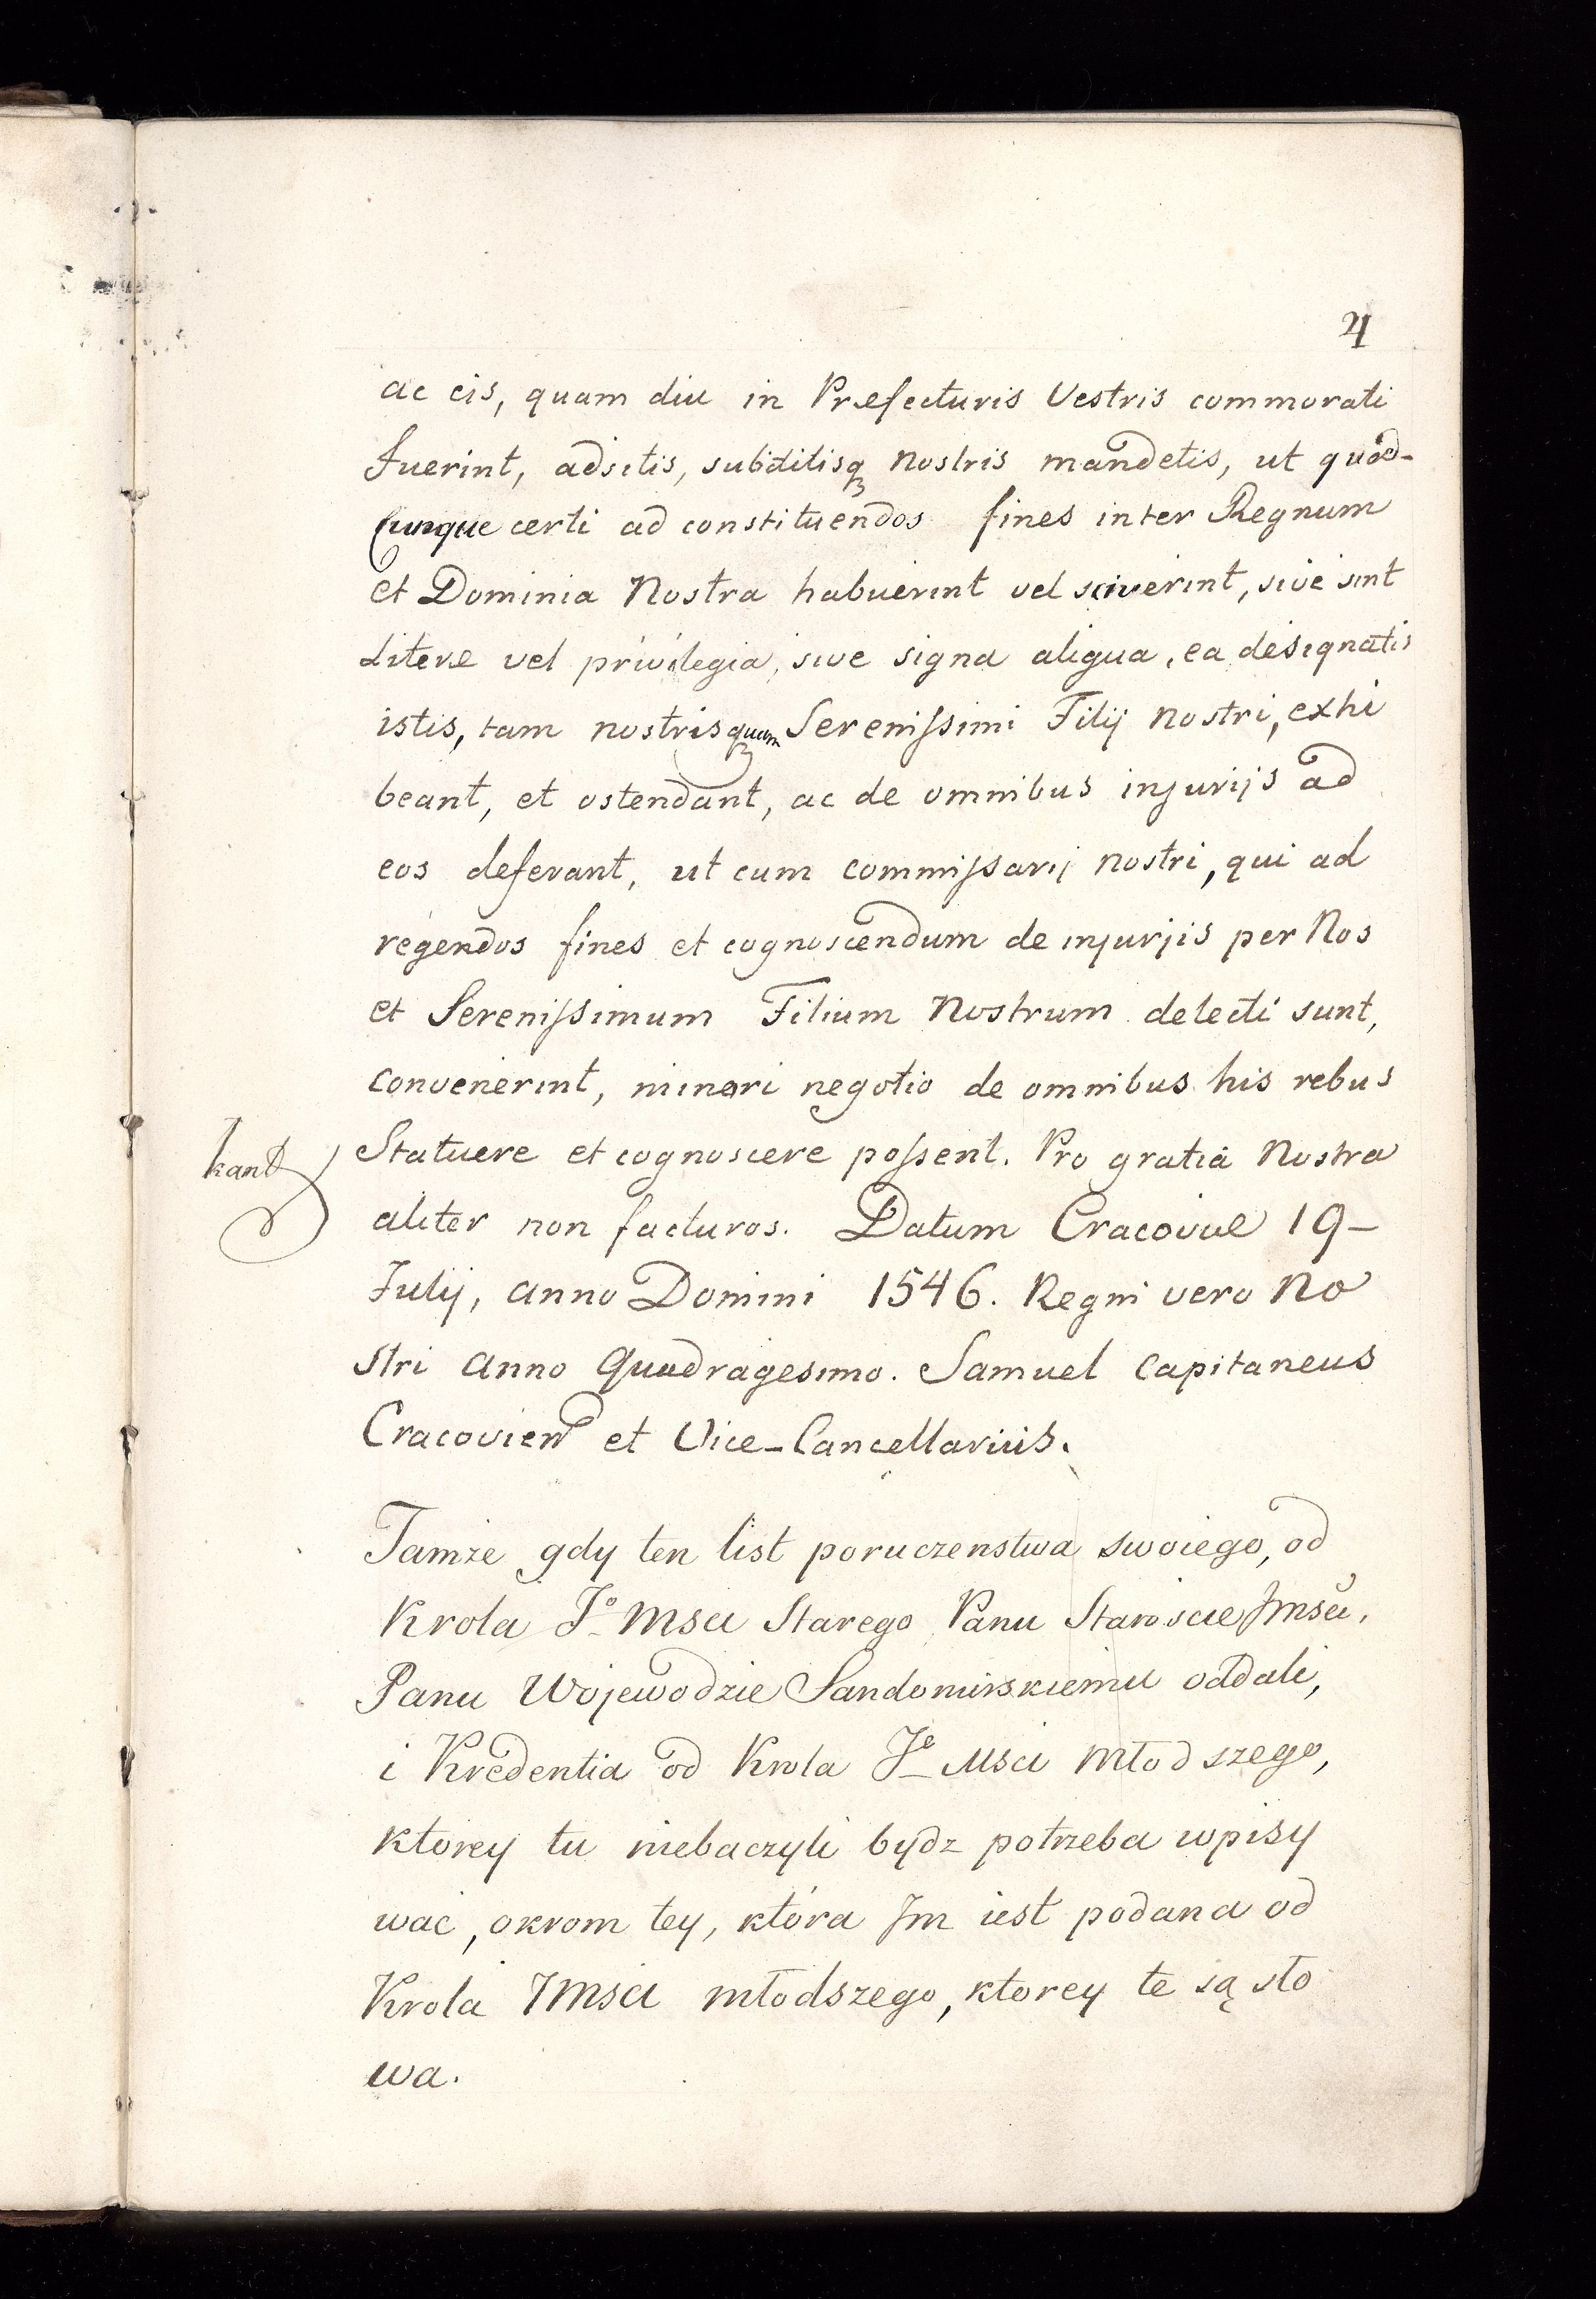 4
ac eis, quam diu in Præfecturis Vestris commorati
fuerint, adsitis, subditisq₃ nostris mandetis, ut quod-
cunque certi ad constituendos fines inter Regnum
et Dominia Nostra habuerint vel sciverint, sive sint
Literæ vel privilegia, sive signa aligua, ea designatis
istis, tam nostris quam Serenissimi Filij nostri, exhi
beant, et ostendant, ac de omnibus injurijs ad
eos deferant, ut cum commissarij nostri, qui ad
regendos fines et cognoscendum de injurjis per Nos
et Serenissimum Filium Nostrum delecti sunt,
convenerint, minori negotio de omnibus his rebus
kant Statuere et cognoscere possent. Pro gratia Nostra
aliter non facturos. Datum Cracoviæ 19–
Julij, anno Domini 1546. Regni vero No
stri anno Quadragesimo. Samuel Capitaneus
Cracovien et Vice-Cancellarius.
Tamże gdy ten list poruczenstwa swoiego, od
Krola Jº Msci Starego Panu Staroscie Jmści,
Panu Wojewodzie Sandomirskiemu oddali,
i Kredentia od Krola Jᵉ Msci młodszego,
ktorey tu niebaczyli bydz potrzeba wpisy
wac, okrom tey, która Jm iest podana od
Krola JMsci młodszego, ktorey te są sło
wa.